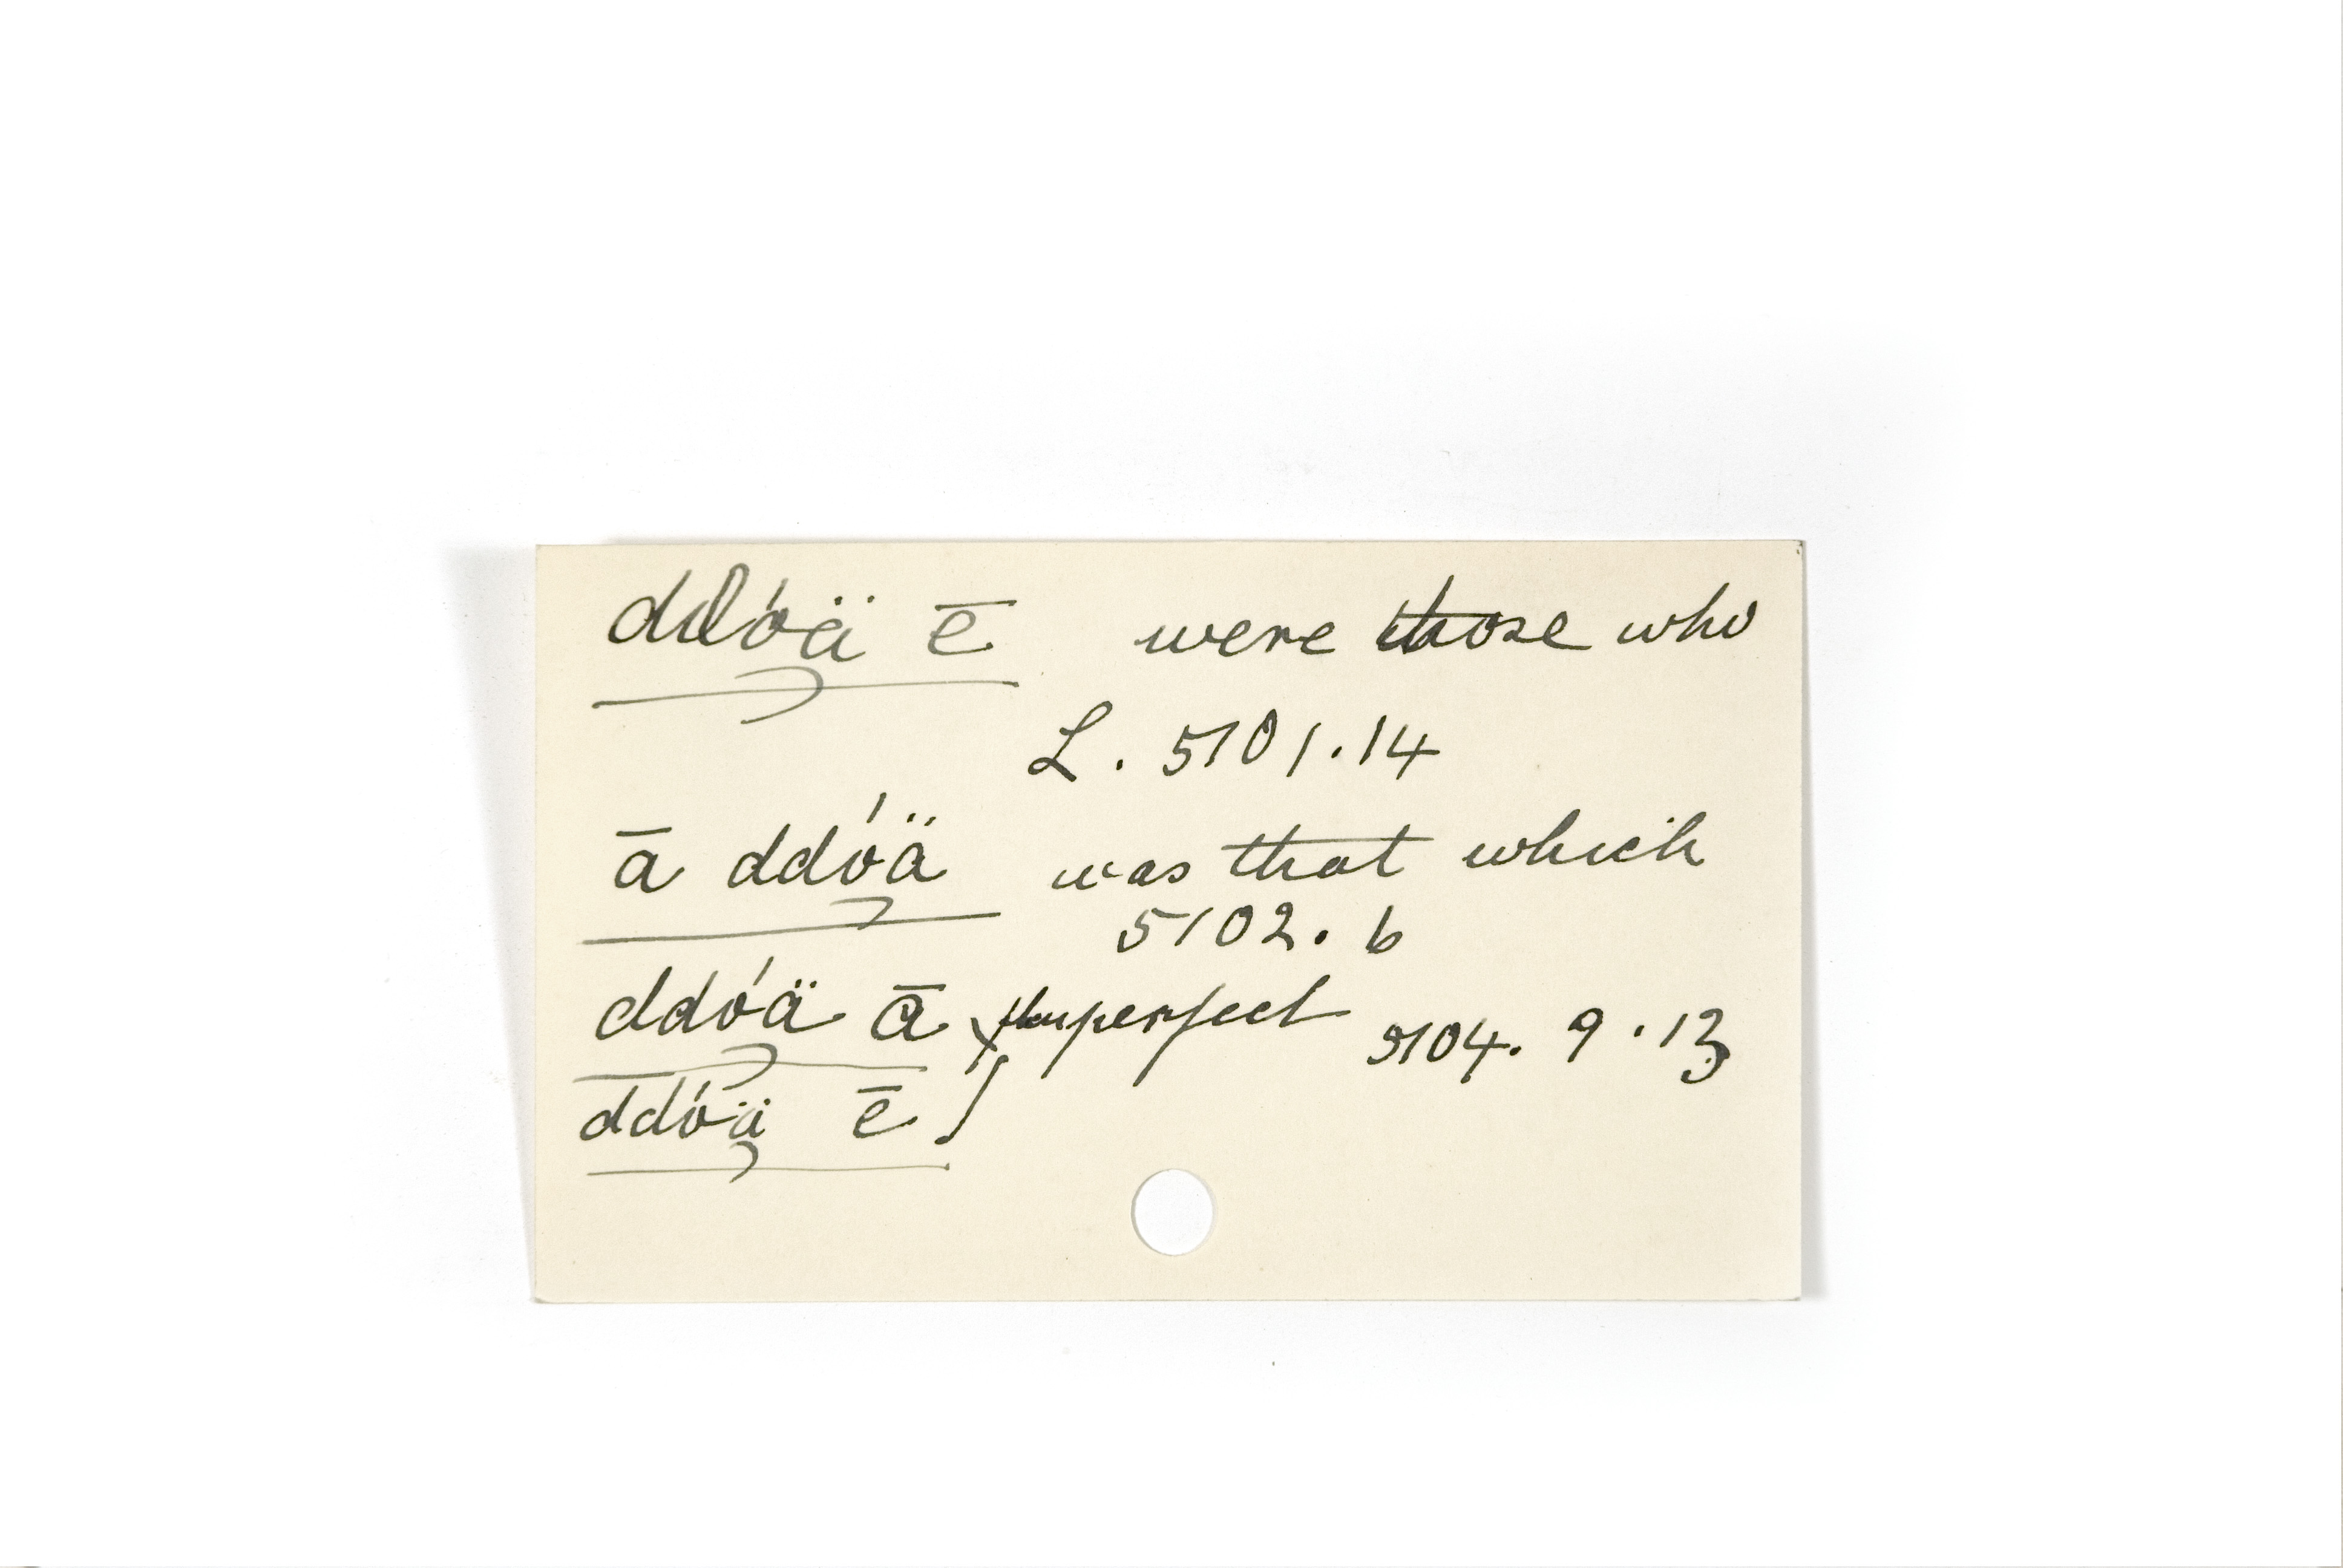 ddóä ē were those who
L. 5101.14
ā ddóä was that which
5102. 6
ddóä ā } Pluperfect 5104. 9.13
ddóä ē